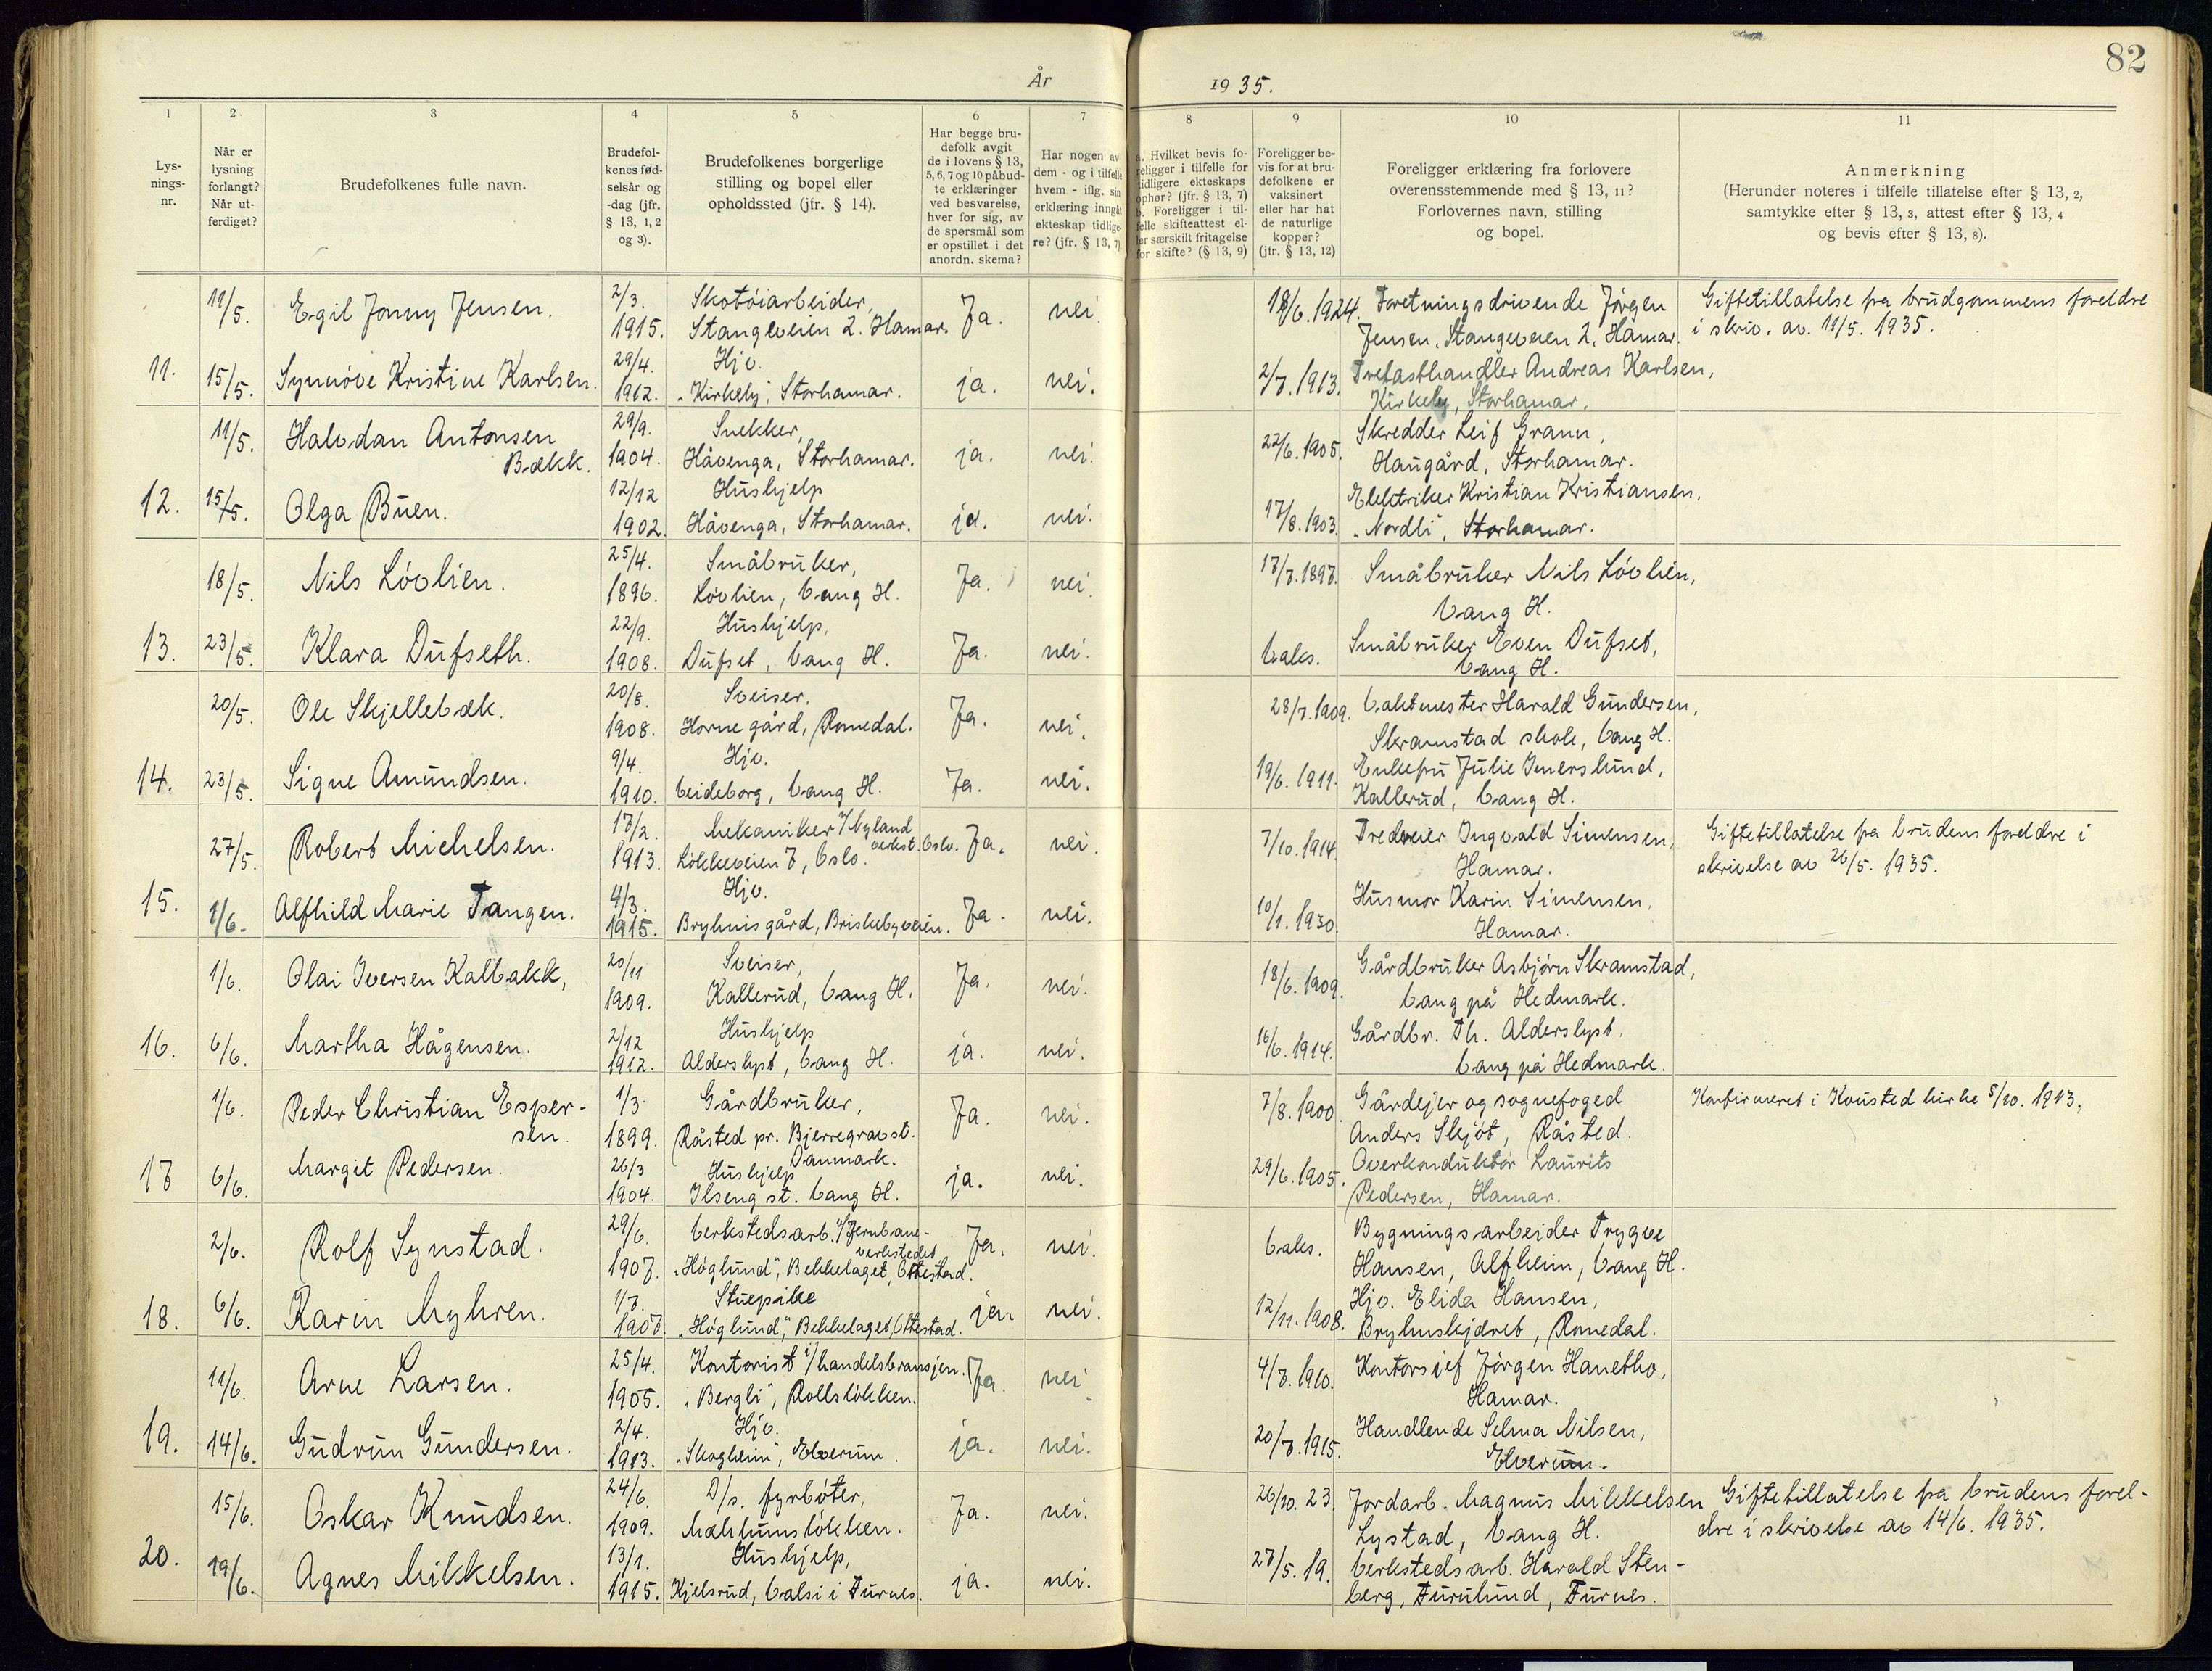 82
År 1935.
1 2 3 4 5 6 7 8 9 10 11
Lys-
nings-
nr.
Når er
lysning
forlangt?
Når ut-
ferdiget?
Brudefolkenes fulle navn.
Brudefol-
kenes fød-
selsår og
-dag (jfr.
§ 13, 1, 2
og 3).
Brudefolkenes borgerlige
stilling og bopel eller
opholdssted (jfr. § 14).
Har begge bru-
defolk avgit
de i lovens § 13,
5, 6, 7 og 10 påbud-
te erklæringer
ved besvarelse,
hver for sig, av
de spørsmål som
er opstillet i det
anordn. skema?
Har nogen av
dem - og i tilfelle
hvem - iflg. sin
erklæring inngått
ekteskap tidlige-
re? (jfr. § 13, 7)
a. Hvilket bevis fo-
religger i tilfelle for
tidligere ekteskaps
ophør? (jfr. § 13, 7)
b. Foreligger i til-
felle skifteattest el-
ler særskilt fritagelse
for skifte? (§ 13, 9)
Foreligger be-
vis for at bru-
defolkene er
vaksinert
eller har hat
de naturlige
kopper?
(jfr. § 13, 12)
Foreligger erklæring fra forlovere
overensstemmende med § 13, 11?
Forlovernes navn, stilling
og bopel.
Anmerkning
(Herunder noteres i tilfelle tillatelse efter § 13, 2,
samtykke efter § 13, 3, attest efter § 13, 4
og bevis efter § 13, 8).
11/5. Egil Jonny Jensen. 2/3. Skotøiarbeider, Ja. nei. 18/6.1924. Foretningsdrivende Jørgen Giftetillatelse fra brudgommens foreldre
1915. Stangeveien 2. Hamar. Jensen, Stangeveien 2, Hamar. i skriv. av. 11/5. 1935.
11. 15/5. Synnøve Kristine Karlsen. 29/4. Hjv. ja. nei. 2/7.1913. Trelasthandler Andreas Karlsen,
1912. "Kirkeby", Storhamar. Kirkeby, Storhamar.
11/5. Halvdan Antonsen 29/9. Snekker, ja. nei. 22/6.1905. Skredder Leif Grann,
Bækk. 1904. Håvenga, Storhamar. Haugård, Storhamar.
12. 15/5. Olga Buen. 12/12 Hushjelp ja. nei. 17/8.1903. Elektriker Kristian Kristiansen,
1902. Håvenga, Storhamar. "Nordli", Storhamar.
18/5. Nils Løvlien. 25/4. Småbruker, Ja. nei. 17/7.1897. Småbruker Nils Løvlien,
1896. Løvlien, Vang H. Vang H.
13. 23/5. Klara Dufseth. 22/9. Hushjelp, Ja. nei. Vaks. Småbruker Even Dufset,
1908. Dufset, Vang H. Vang H.
20/5. Ole Skjellebæk. 20/8. Sveiser. Ja. nei. 28/7.1909. Vaktmester Harald Gundersen,
1908. Horne gård, Romedal. Skramstad skole, Vang H.
14. 23/5. Signe Amundsen. 9/4. Hjv. Ja. nei. 19/6.1911. Enkefru Julie Imerslund,
1910. Veideborg, Vang H. Kallerud, Vang H.
27/5. Robert Michelsen. 17/2. Mekaniker v/Nyland Ja. nei. 7/10.1914. Tredreier Ingvald Simensen, Giftetillatelse fra brudens foreldre i
verkst. Oslo.
1913. Løkkeveien 7, Oslo. Hamar. skrivelse av 26/5. 1935.
15. 1/6. Alfhild Marie Tangen. 4/3. Hjv. Ja. nei. 10/1.1930. Husmor Karin Simensen,
1915. Bryhnisgård, Briskebyveien. Hamar.
1/6. Olai Iversen Kalbakk, 20/11 Sveiser, Ja. nei. 18/6.1909. Gårdbruker Asbjørn Skramstad,
1909. Kallerud, Vang H. Vang på Hedmark.
16. 6/6. Martha Hågensen. 2/12 Hushjelp ja. nei. 16/6.1914. Gårdbr. Th. Alderslyst.
1912. Alderslyst, Vang H. Vang på Hedmark.
1/6. Peder Christian Esper- 1/3. Gårdbruker, Ja. nei. 7/8.1900. Gårdejer og sognefoged Konfirmeret i Kousted kirke 5/10. 1913,
sen. 1899. Råsted pr. Bjerregrav st. Anders Skjøt, Råsted.
Danmark.
17 6/6. Margit Pedersen. 26/3 Hushjelp ja. nei. 29/6.1905. Overkonduktør Laurits
1904. Ilseng st. Vang H. Pedersen, Hamar.
2/6. Rolf Synstad. 29/6. Verkstedsarb. v/Jernbane- Ja. nei. Vaks. Bygningsarbeider Trygve
verkstedet
1907. "Høglund", Bekkelaget, Ottestad. Hansen, Alfheim, Vang H.
18. 6/6. Karin Myhren. 1/7. Stuepike ja. nei. 12/11.1908. Hjv. Elida Hansen,
1907. "Høglund", Bekkelaget, Ottestad. Bryhnskjdret, Romedal.
11/6. Arne Larsen. 25/4. Kontorist i/handelsbransjen. Ja. nei. 4/7.1910. Kontorsjef Jørgen Hanetho,
1905. "Bergli", Rollsløkken. Hamar.
19. 14/6. Gudrun Gundersen. 2/4. Hjv. ja. nei. 20/7.1915. Handlende Selma Nilsen,
1913. "Skogheim", Elverum. Elverum.
15/6. Oskar Knudsen. 24/6. D/s. fyrbøter, Ja. nei. 26/10. 23. Jordarb. Magnus Mikkelsen Giftetillatelse fra brudens forel-
1909. Mæhlumsløkken. Lystad, Vang H. dre i skrivelse av 14/6. 1935.
20. 19/6. Agnes Mikkelsen. 13/1. Hushjelp, ja. nei. 27/5. 19. Verkstedsarb. Harald Sten-
1915. Kjelsrud, Valsi i Furnes. berg, Furulund, Furnes.